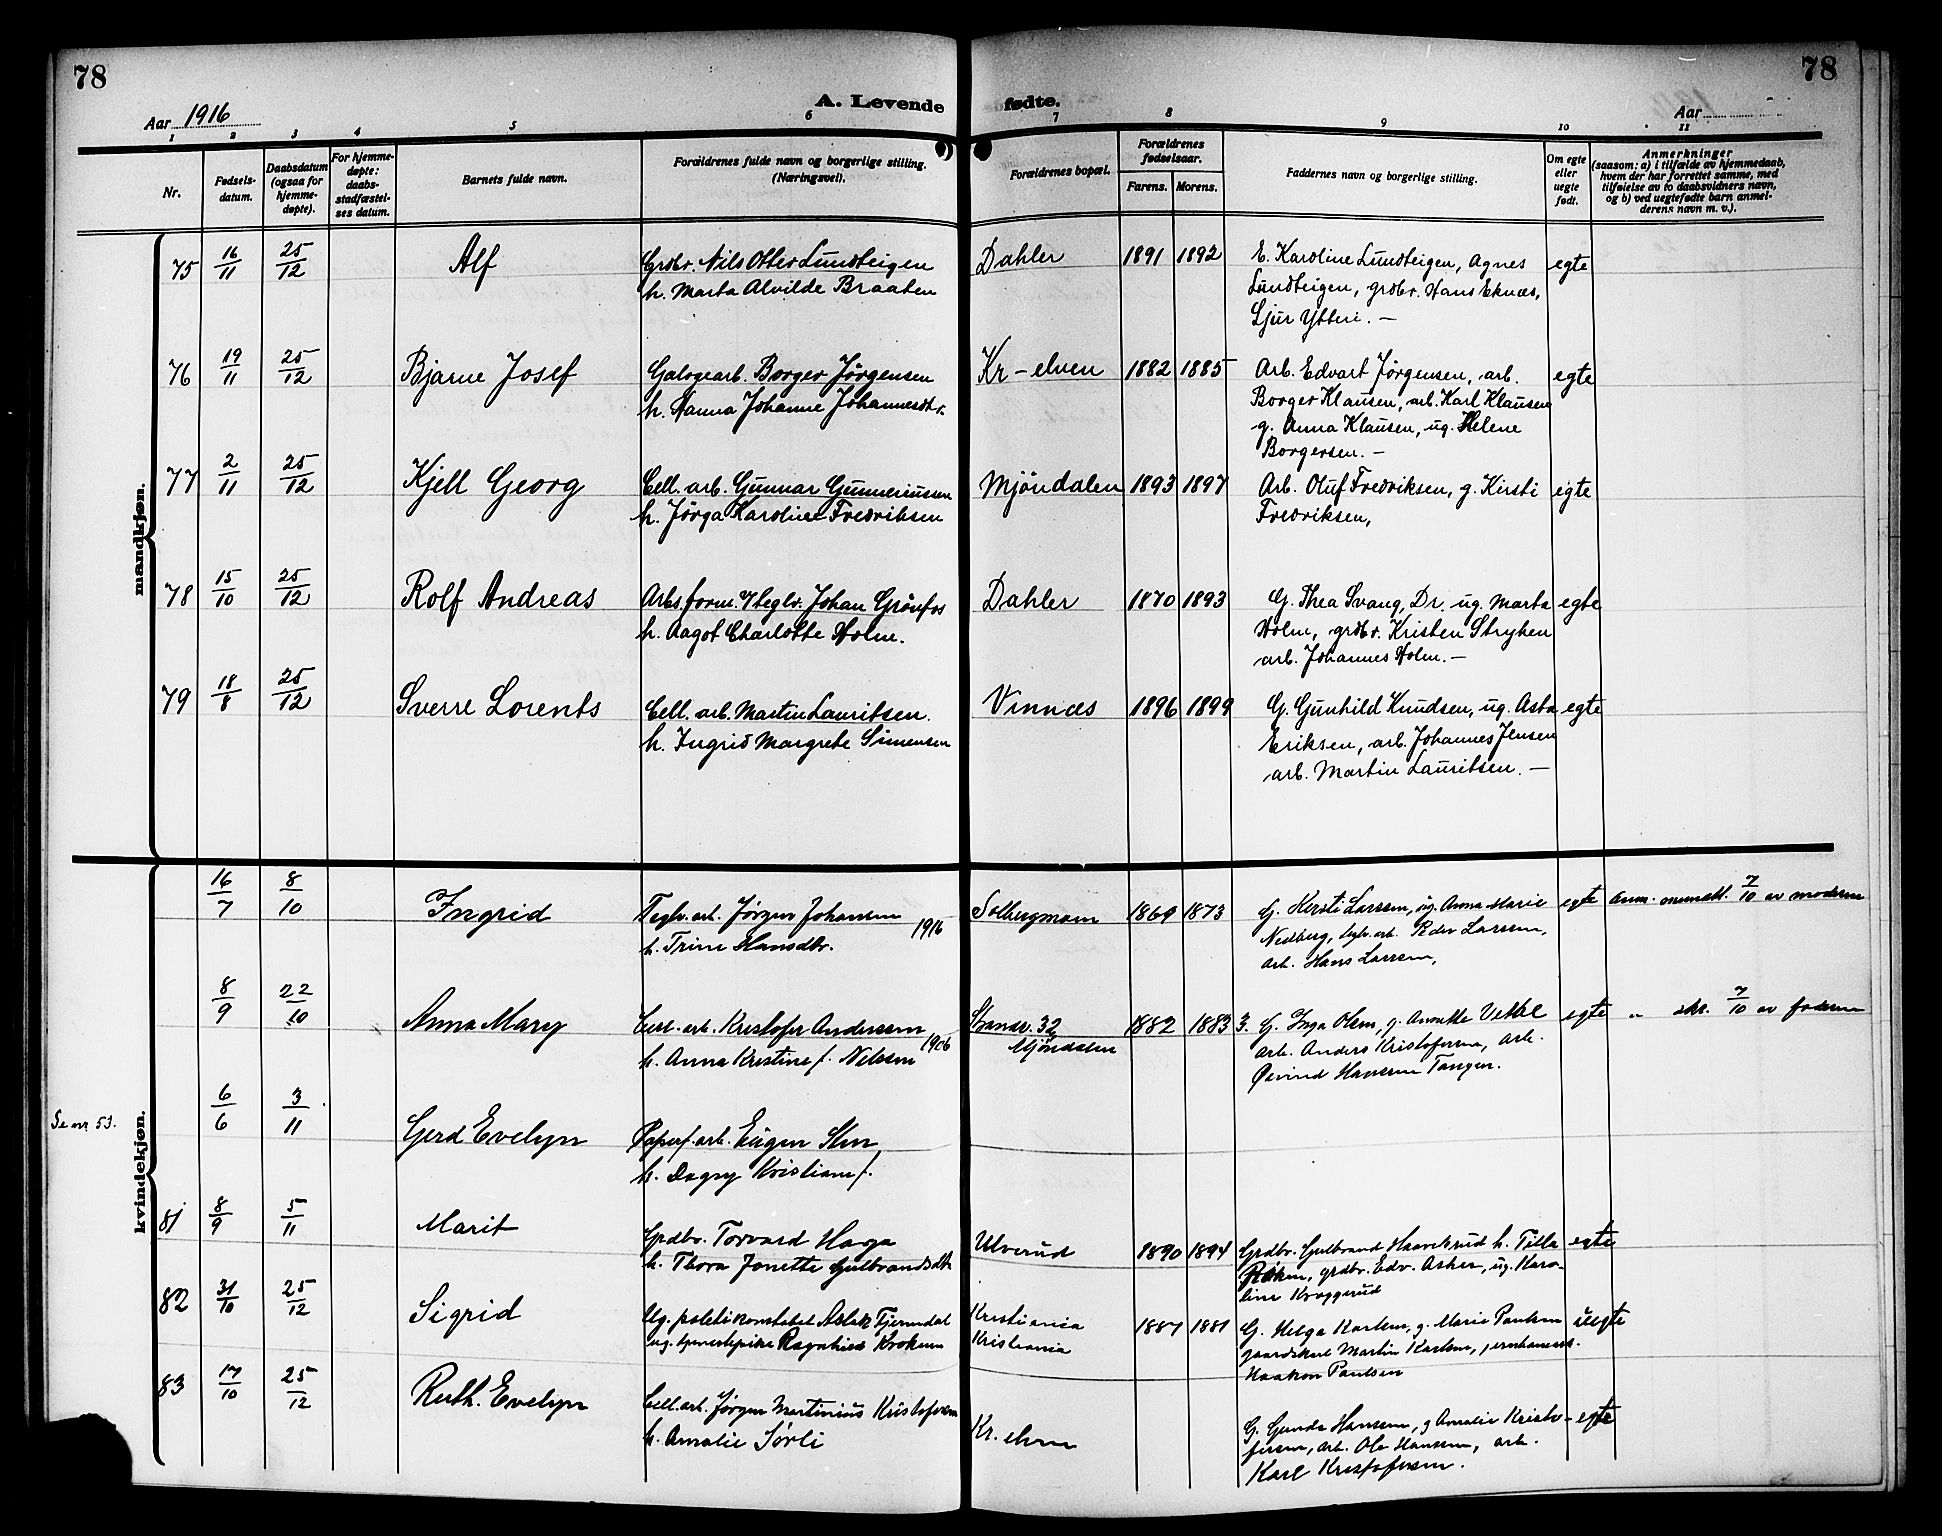 78
78
A. Levende fødte.
Aar 1916
Aar
1 2 3 4 5 6 7 8 9 10 11
Nr.
Fødsels-
datum.
Daabsdatum
(ogsaa for
hjemme-
døpte).
For hjemme-
døpte:
daabs-
stadfæstel-
ses datum.
Barnets fulde navn.
Forældrenes fulde navn og borgerlige stilling.
(Næringsvei).
Forældrenes bopæl.
Forældrenes
fødselsaar.
Farens. Morens.
Faddernes navn og borgerlige stilling.
Om egte
eller
uegte
født.
Anmerkninger
(saasom: a) i tilfælde av hjemmedaab,
hvem der har forrettet samme, med
tilføielse av to daabsvidners navn,
og b) ved uegtefødte barn anmel-
derens navn m. v.).
mandkjøn.
75 16/11 25/12 Alf Grdbr. Nils Otter Lundteigen Dahler 1891 1892 E. Karoline Lundteigen, Agnes egte
h. Marta Alvilde Braaten Lundteigen, grdbr. Hans Eknæs,
Sjur Ytteri. —
76 19/11 25/12 Bjarne Josef Galogearb. Borger Jørgensen Kr-elven 1882 1885 Arb. Edvart Jørgensen, arb. egte
h. Hanna Johanne Johannesdtr. Borger Klausen, arb. Karl Klausen
g. Anna Klausen, ug. Helene
Borgersen. —
77 2/11 25/12 Kjell Georg Cell. arb. Gunnar Gunneriussen Mjöndalen 1893 1897 Arb. Oluf Fredriksen, g. Kirsti egte
h. Jørga Karoline Fredriksen Fredriksen,
78 15/10 25/12 Rolf Andreas Arbs. form. v/teglv. Johan Grönfos Dahler 1870 1893 G. Thea Svang, Dr. ug. Marta egte
h. Aagot Charlotte Holm. Holm, grdbr. Kristen Stryken
arb. Johannes Holm. —
79 18/8 25/12 Sverre Lorents Cell. arb. Martin Lauritsen. Vinnæs 1896 1899 G. Gunhild Knudsen, ug. Asta egte
h. Ingrid Margrete Simensen Eriksen, arb. Johannes Jensen
arb. Martin Lauritsen. —
kvindekjøn.
16/7 8/10 Ingrid Teglv. arb. Jørgen Johansen 1916 Solbergmoen 1869 1873 G. Kersti Larsen, ug. Anna Marie egte anm. mundtl. 7/10 av moderen
h. Trine Hansdtr. Nedberg, teglv. arb. Larsen,
arb. Hans Larsen,
8/9 22/10 Anna Mary Cell. arb. Kristofer Andersen 1906 Strandv. 32 1882 1883 3. G. Inga Olsen, g. Annette Vettel egte " skr. 7/10 av faderen
h. Anna Kristine f. Nelsen Mjöndalen arb. Anders Kristofersen, arb.
Øivind Hansen Tangen.
Se nr 53. 6/6 3/11 Gerd Evelyn Papirf. arb. Eugen Sten
h. Dagny Kristians f.
81 8/9 5/11 Marit Grdbr. Torvard Haga Ulverud 1890 1894 Grdbr. Gulbrand Haavelsrud h. Tilla egte
h. Thora Jonette Gulbrandsdtr. Röken, grdbr. Edv. Asker, ug. Karo-
line Kroggerud
82 31/10 25/12 Sigrid Ug. politikonstabel Aslak Tjerndal Kristiania 1887 1881 G. Helga Karlsen, g. Marie Paulsen uegte
ug. tjenestepike Ragnhild Kroken Kristiania gaardskarl Martin Karlsen, jernbanearb.
Haakon Paulsen
83 17/10 25/12 Ruth. Evelyn Cell. arb. Jørgen Martinius Kristofersen Kr. elven G. Gunda Hansen, g Amalie Kristo- egte
h. Amalie Sørli fersen, arb. Ole Hansen, arb.
Karl Kristofersen.